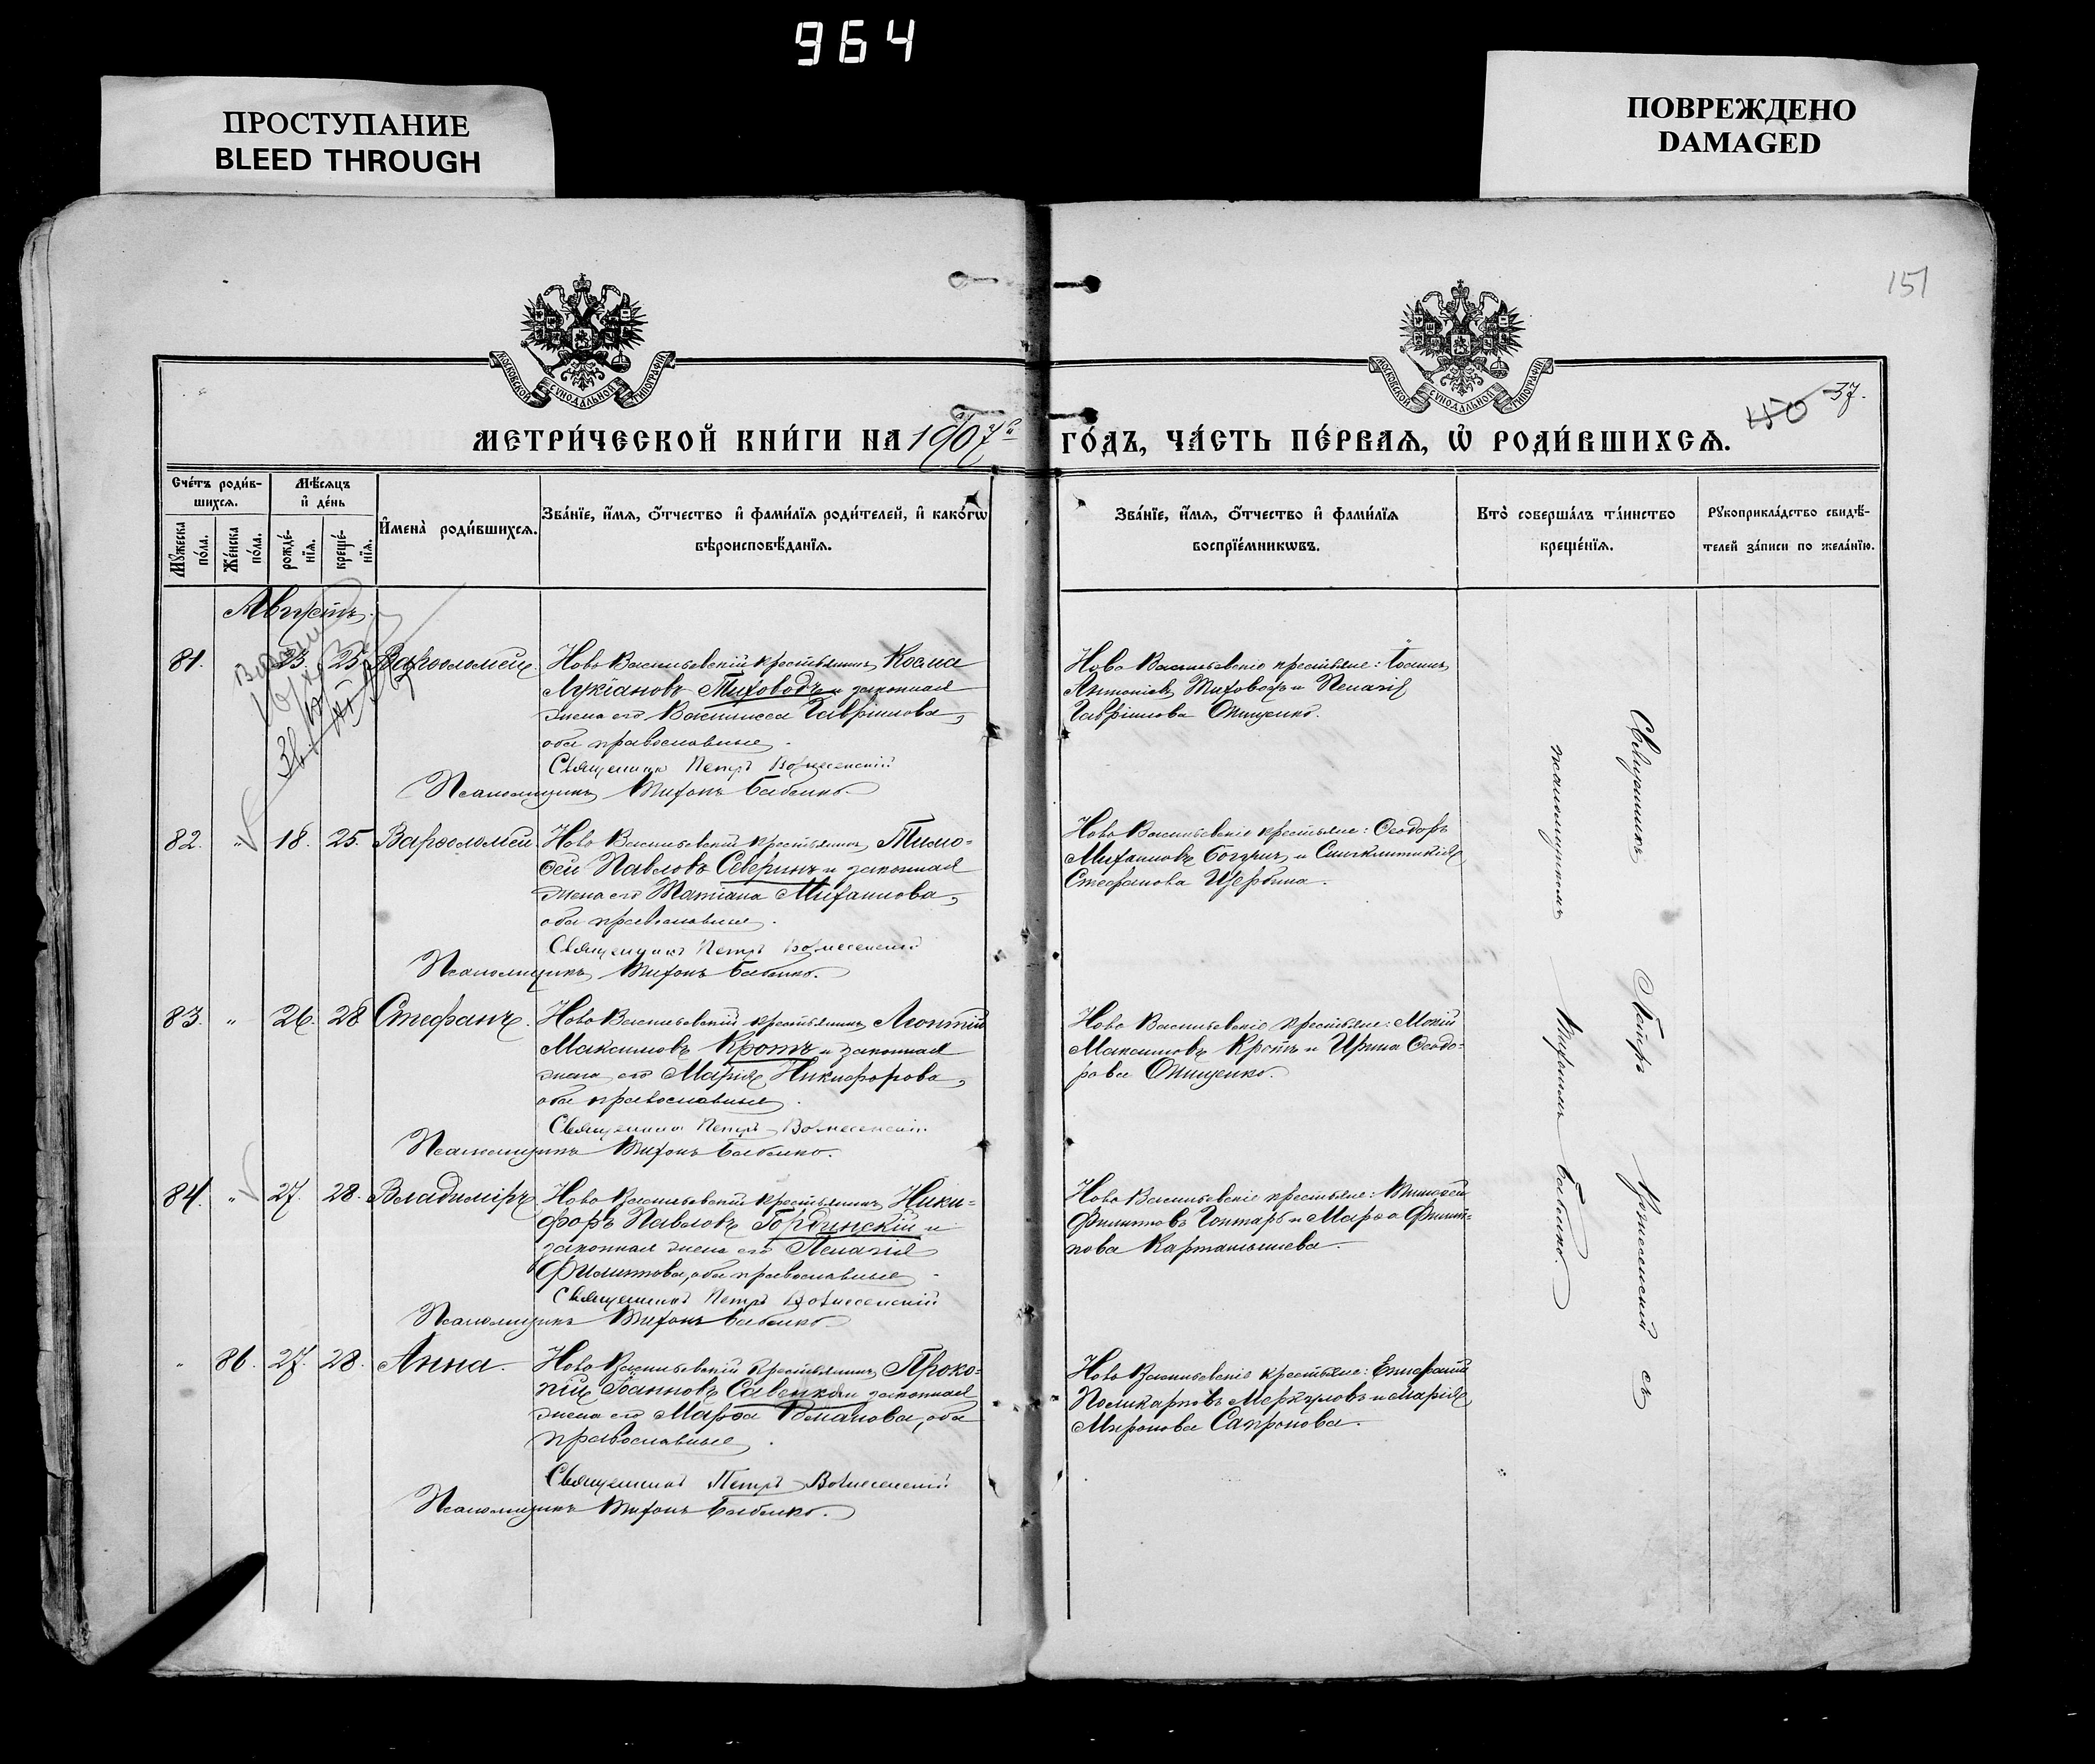 964
ПРОСТУПАНИЕ
BLEED THROUGH
ПОВРЕЖДЕНО
DAMAGED
151
МОСКОВСКОЙ СѴНОДАЛЬНОЙ ТИПОГРАФІИ
МОСКОВСКОЙ СѴНОДАЛЬНОЙ ТИПОГРАФІИ
150 37.
МЕТРИ́ЧЕСКОЙ КНИ́ГИ НА 1907й ГО́ДЪ, ЧА́СТЬ ПЕ́РВАѦ, Ѡ҆ РОДИ́ВШИХСѦ.
Сче́тъ роди́в-
шихсѧ.
Мꙋ́жеска по́ла.
Же́нска по́ла.
Мѣ́сѧцъ
и҆ де́нь
рожде́-
нїѧ.
креще́-
нїѧ.
И҆мена̀ роди́вшихсѧ.
Зва́нїе, и҆́мѧ, ѻ҆́тчество и҆ фами́лїѧ роди́телей, и҆ како́гѡ
вѣроисповѣ́данїѧ.
Зва́нїе, и҆́мѧ, ѻ҆́тчество и҆ фами́лїѧ
воспрїе́мникѡвъ.
Кто̀ соверша́лъ та́инство
креще́нїѧ.
Рꙋкоприкла́дство свидѣ́-
телей за́писи по жела́нїю.
Августъ.
81. 23. 25. Варѳоломей. Ново Васильевскій крестьянинъ Косма
Лукіановъ Тиховодъ и законная
жена его Василисса Гавріилова,
оба православные.
Священникъ Петръ Вознесенскій
Псаломщикъ Тихонъ Бабенко.
Ново Васильевскіе крестьяне: Іоаннъ
Антоніевъ Тиховодъ и Пелагія
Гавріилова Онищенко.
82. " 18. 25. Варѳоломей. Ново Васильевскій крестьянинъ Тимо-
ѳей Павловъ Северинъ и законная
жена его Татіана Михаилова,
оба православные.
Священникъ Петръ Вознесенскій
Псаломщикъ Тихонъ Бабенко.
Ново Васильевскіе крестьяне: Ѳеодоръ
Михаиловъ и Синклитикія
Стефанова Щербина.
83. " 26. 28 Стефанъ. Ново Васильевскій крестьянинъ Леонтій
Максимовъ Кротъ и законная
жена его Марія Никифорова,
оба православные.
Священникъ Петръ Вознесенскій
Псаломщикъ Тихонъ Бабенко.
Ново Васильевскіе крестьяне: Мокій
Максимовъ Кротъ и Ирина Ѳеодо-
рова Онищенко.
84. " 27. 28. Владиміръ. Ново Васильевскій крестьянинъ Ники-
форъ Павловъ Гординскій и
законная жена его Пелагія
Филиппова, оба православные.
Священникъ Петръ Вознесенскій
Псаломщикъ Тихонъ Бабенко.
Ново Васильевскіе крестьяне: Тимоѳей
Филипповъ Гонтарь и Марѳа Филип-
пова Картамышева.
" 86. 27. 28. Анна. Ново Васильевскій крестьянинъ Проко-
пій Іоанновъ Савенков и законная
жена его Марѳа Романова, оба
православные.
Священникъ Петръ Вознесенскій
Псаломщикъ Тихонъ Бабенко.
Ново Васильевскіе крестьяне: Епифаній
Поликарповъ Меркуловъ и Марія
Миронова Сапронова.
Священникъ Петръ Вознесенскій съ
псаломщикомъ Тихономъ Бабенко.